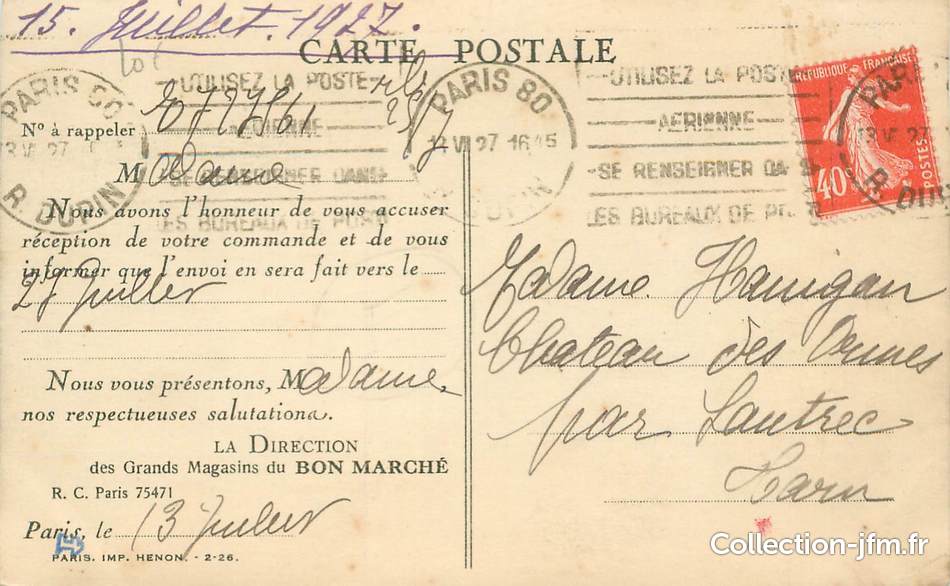 15. Juillet. 1927.
CARTE POSTALE
UTILISEZ LA POSTE
AERIENNE
SE RENSEIGNER DANS
LES BUREAUX DE POSTE
PARIS 80
13 VII 27 16 45
R. DUPIN
UTILISEZ LA POSTE
AERIENNE
SE RENSEIGNER DA S
LES BUREAUX DE P
RÉPUBLIQUE FRANÇAISE
POSTES
40
PARIS
13 VII 27
R. DUPIN
N° à rappeler
Madame
Nous avons l'honneur de vous accuser
réception de votre commande et de vous
informer que l'envoi en sera fait vers le
27 Juillet
Nous vous présentons, Madame
nos respectueuses salutations.
LA DIRECTION
des Grands Magasins du BON MARCHÉ
R. C. Paris 75471
Paris, le 13 Juillet
PARIS. IMP. HENON. - 2-26.
Madame Hanigan
Chateau des Ormes
par Lautrec
Tarn
Collection-jfm.fr